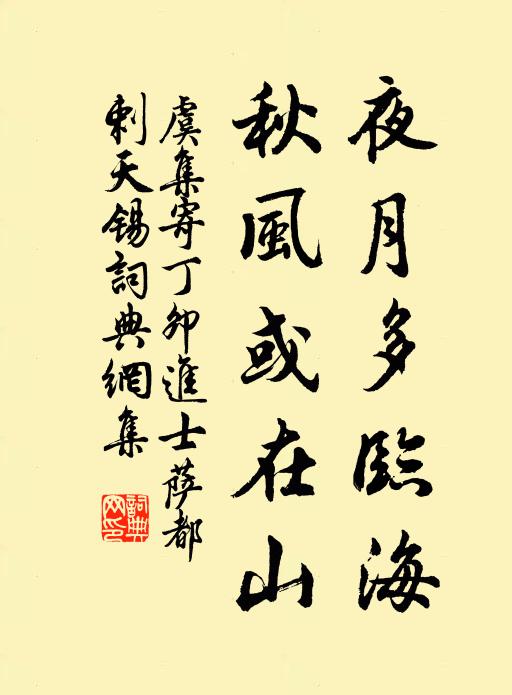 夜月多臨海
秋風或在山
虞集寄丁卯進士薩都
剌天錫詞典網集
詞典
网印